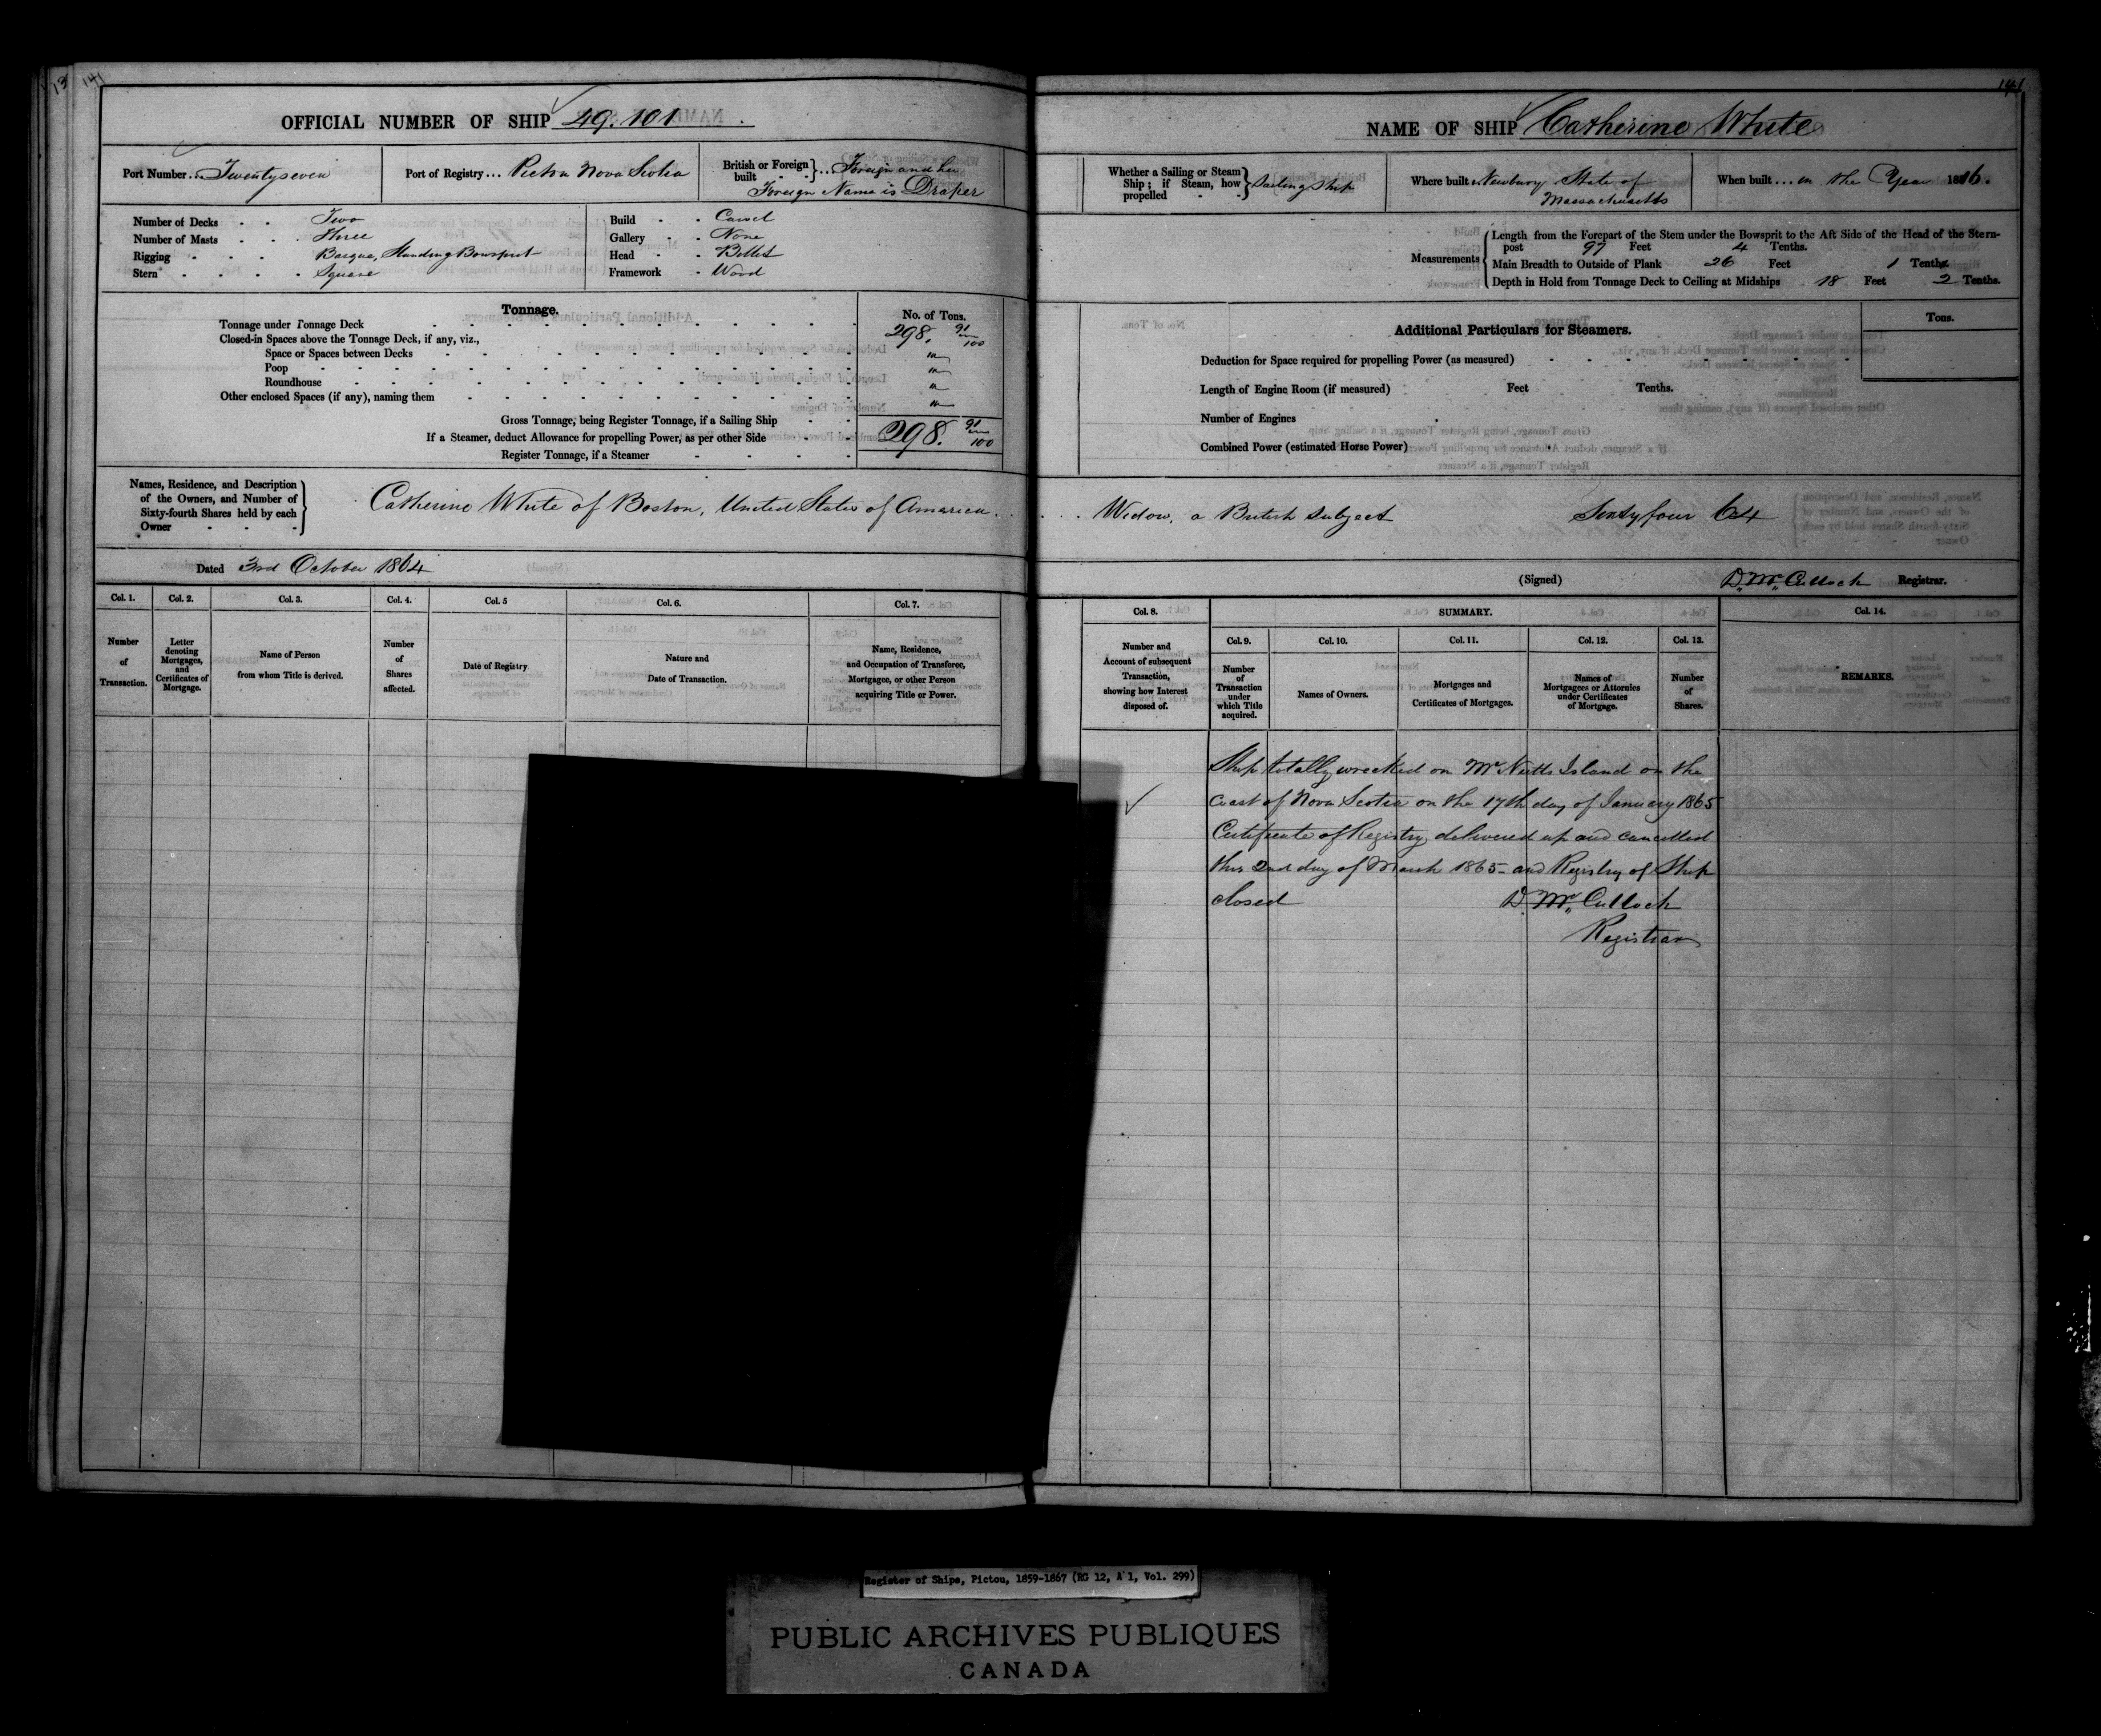 13 141
OFFICIAL NUMBER OF SHIP 49.101
Port Number... Twentyseven
Port of Registry... Pictou Nova Scotia
British or Foreign built - - }... Foreign and her
Foreign Name is Draper
Number of Decks - - Two
Number of Masts - - - Three
Rigging - - - - Barque, Standing Bowsprit
Stern - - - - - Square
Build - - Carvel
Gallery - - None
Head - - Billet
Framework - Wood
Tonnage.
No. of Tons.
Tonnage under Tonnage Deck 298. 91/100
Closed-in Spaces above the Tonnage Deck, if any, viz.,
Space or Spaces between Decks
Poop
Roundhouse
Other enclosed Spaces (if any), naming them
Gross Tonnage, being Register Tonnage, if a Sailing Ship
If a Steamer, deduct Allowance for propelling Power, as per other Side 298. 91/100
Register Tonnage, if a Steamer
Names, Residence, and Description
of the Owners, and Number of
Sixty-fourth Shares held by each
Owner - - -
Catherine White of Boston, United States of America.
Dated 3rd October 1864
Col. 1. Col. 2. Col. 3. Col. 4. Col. 5 Col. 6. Col. 7.
Number of Transaction.
Letter denoting Mortgages, and Certificates of Mortgage.
Name of Person from whom Title is derived.
Number of Shares affected.
Date of Registry
Nature and Date of Transaction.
Name, Residence, and Occupation of Transferee, Mortgagee, or other Person acquiring Title or Power.
141
NAME OF SHIP Catherine White
Whether a Sailing or Steam Ship; if Steam, how propelled - - } Sailing Ship
Where built Newbury State of
Massachusetts
When built ... in the Year 1816.
Measurements
Length from the Forepart of the Stem under the Bowsprit to the Aft Side of the Head of the Stern-
post 97 Feet 4 Tenths.
Main Breadth to Outside of Plank 26 Feet 1 Tenths
Depth in Hold from Tonnage Deck to Ceiling at Midships 18 Feet 2 Tenths.
Additional Particulars for Steamers.
Tons.
Deduction for Space required for propelling Power (as measured)
Length of Engine Room (if measured) Feet Tenths.
Number of Engines
Combined Power (estimated Horse Power)
Widow, a British subject Sixtyfour 64
(Signed) D. McCulloch Registrar.
Col. 8. SUMMARY. Col. 14.
Col. 9. Col. 10. Col. 11. Col. 12. Col. 13.
Number and Account of subsequent Transaction, showing how Interest disposed of.
Number of Transaction under which Title acquired.
Names of Owners.
Mortgages and Certificates of Mortgages.
Names of Mortgagees or Attornies under Certificates of Mortgage.
Number of Shares.
REMARKS.
Ship totally wrecked on McNutts Island on the
coast of Nova Scotia on the 17th day of January 1865
Certificate of Registry delivered up and cancelled
this 2nd day of March 1865 - and Registry of Ship
closed D. McCulloch
Registrar
Register of Ships, Pictou, 1859-1867 (RG 12, A 1, Vol. 299)
PUBLIC ARCHIVES PUBLIQUES
CANADA